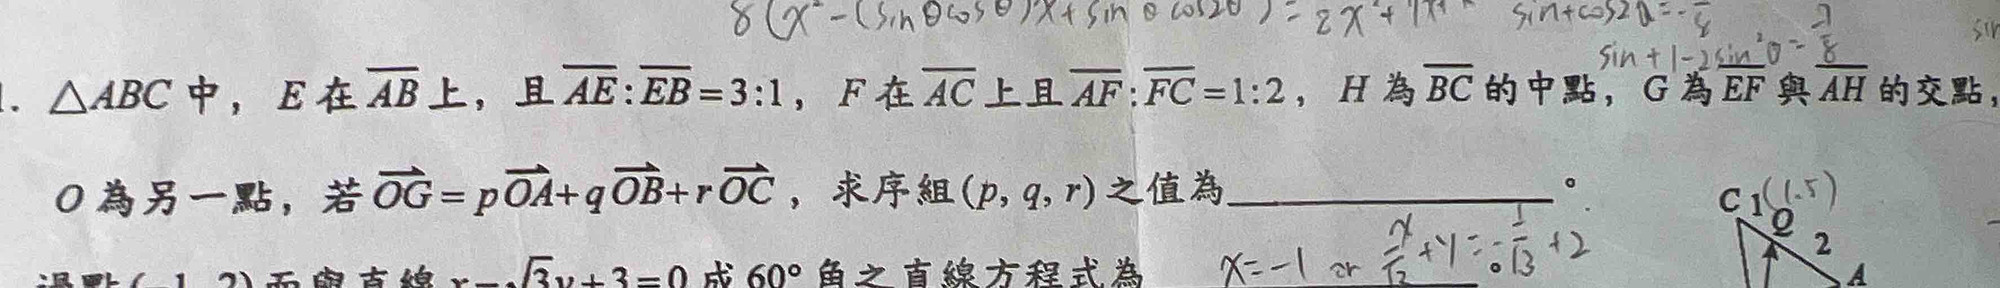 8(x²-(sinθcosθ)x+sinθcos2θ)=8x²+7x+
sin+cos2θ=-7/8
sin+1-2sin²θ=-7/8
sin
. △ABC 中，E 在 AB 上，且 AE:EB=3:1，F 在 AC 上且 AF:FC=1:2，H 為 BC 的中點，G 為 EF 與 AH 的交點，
O 為另一點，若 OG=pOA+qOB+rOC，求序組(p, q, r)之值為＿＿＿＿。
C 1 (1.5)
Q
2
A
過點(-1, 2)而與直線 x-√3y+3=0 成 60° 角之直線方程式為 x=-1 or x/√3+y=-1/√3+2